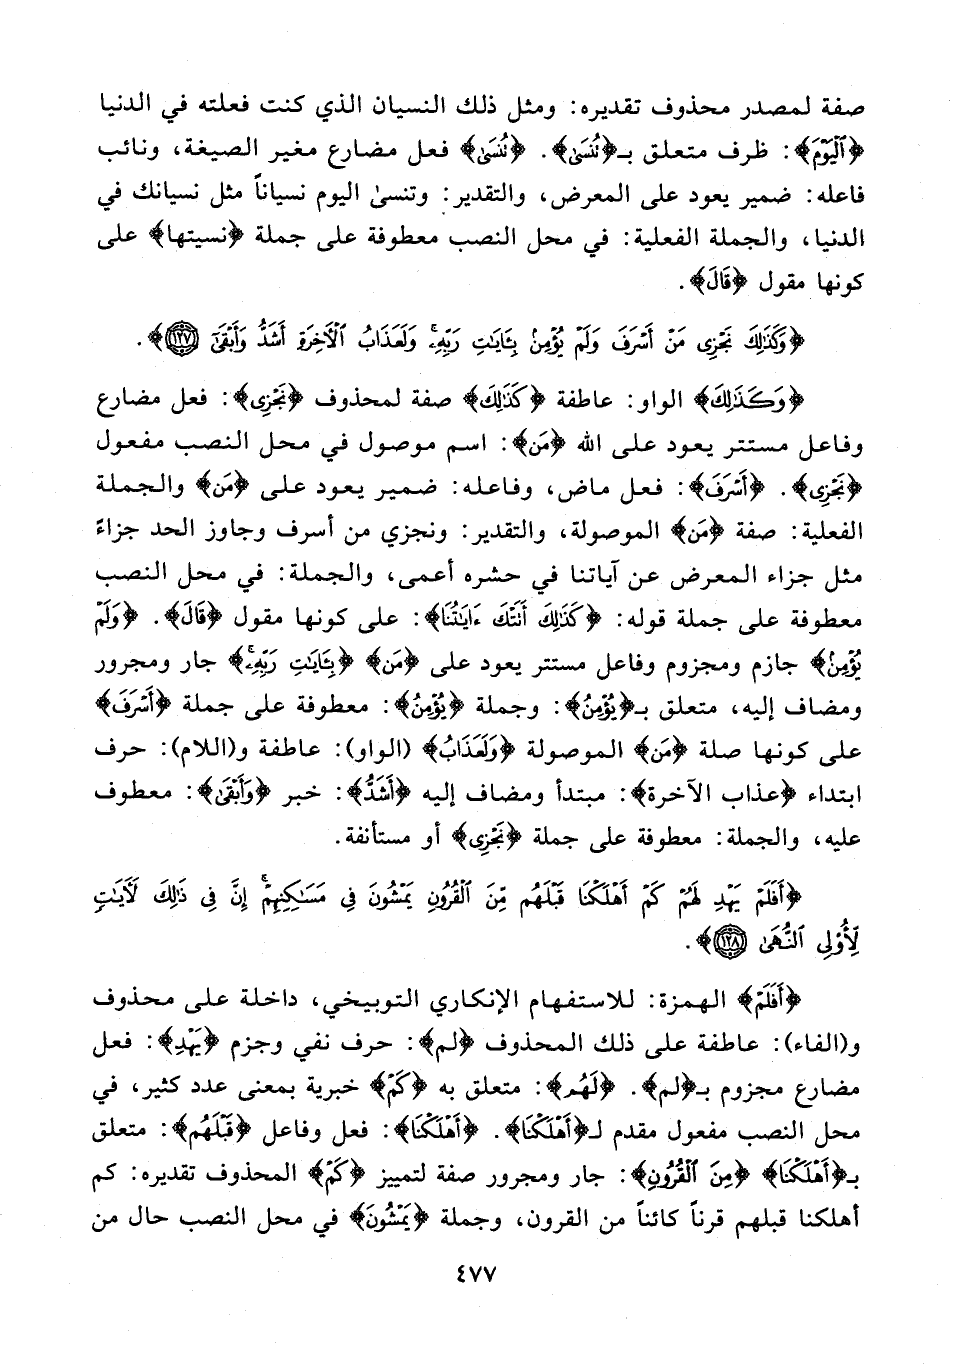 صفة لمصدر محذوف تقديره: ومثل ذلك النسيان الذي كنت فعلته في الدنيا
﴿ٱلْيَوْمَ﴾: ظرف متعلق بـ﴿تُنسَىٰ﴾. ﴿تُنسَىٰ﴾ فعل مضارع مغير الصيغة، ونائب
فاعله: ضمير يعود على المعرض، والتقدير: وتنسىٰ اليوم نسياناً مثل نسيانك في
الدنيا، والجملة الفعلية: في محل النصب معطوفة على جملة ﴿نسيتها﴾ على
كونها مقول ﴿قَالَ﴾.
﴿وَكَذَٰلِكَ نَجْزِى مَنْ أَسْرَفَ وَلَمْ يُؤْمِنۢ بِـَٔايَٰتِ رَبِّهِۦۚ وَلَعَذَابُ ٱلْءَاخِرَةِ أَشَدُّ وَأَبْقَىٰٓ ١٢٧﴾.
﴿وَكَذَٰلِكَ﴾ الواو: عاطفة ﴿كَذَٰلِكَ﴾ صفة لمحذوف ﴿نَجْزِى﴾: فعل مضارع
وفاعل مستتر يعود على الله ﴿مَن﴾: اسم موصول في محل النصب مفعول
﴿نَجْزِى﴾. ﴿أَسْرَفَ﴾: فعل ماض، وفاعله: ضمير يعود على ﴿مَن﴾ والجملة
الفعلية: صفة ﴿مَن﴾ الموصولة، والتقدير: ونجزي من أسرف وجاوز الحد جزاءً
مثل جزاء المعرض عن آياتنا في حشره أعمى، والجملة: في محل النصب
معطوفة على جملة قوله: ﴿كَذَٰلِكَ أَتَتْكَ ءَايَٰتُنَا﴾: على كونها مقول ﴿قَالَ﴾. ﴿وَلَمْ
يُؤْمِنۢ﴾ جازم ومجزوم وفاعل مستتر يعود على ﴿مَن﴾ ﴿بِـَٔايَٰتِ رَبِّهِۦۚ﴾ جار ومجرور
ومضاف إليه، متعلق بـ﴿يُؤْمِنۢ﴾: وجملة ﴿يُؤْمِنۢ﴾: معطوفة على جملة ﴿أَسْرَفَ﴾
على كونها صلة ﴿مَن﴾ الموصولة ﴿وَلَعَذَابُ﴾ (الواو): عاطفة و(اللام): حرف
ابتداء ﴿عذاب الآخرة﴾: مبتدأ ومضاف إليه ﴿أَشَدُّ﴾: خبر ﴿وَأَبْقَىٰ﴾: معطوف
عليه، والجملة: معطوفة على جملة ﴿نَجْزِى﴾ أو مستأنفة.
﴿أَفَلَمْ يَهْدِ لَهُمْ كَمْ أَهْلَكْنَا قَبْلَهُم مِّنَ ٱلْقُرُونِ يَمْشُونَ فِى مَسَٰكِنِهِمْۗ إِنَّ فِى ذَٰلِكَ لَءَايَٰتٍ
لِّأُوْلِى ٱلنُّهَىٰ ١٢٨﴾.
﴿أَفَلَمْ﴾ الهمزة: للاستفهام الإنكاري التوبيخي، داخلة على محذوف
و(الفاء): عاطفة على ذلك المحذوف ﴿لم﴾: حرف نفي وجزم ﴿يَهْدِ﴾: فعل
مضارع مجزوم بـ﴿لم﴾. ﴿لَهُم﴾: متعلق به ﴿كَمْ﴾ خبرية بمعنى عدد كثير، في
محل النصب مفعول مقدم لـ﴿أَهْلَكْنَا﴾. ﴿أَهْلَكْنَا﴾: فعل وفاعل ﴿قَبْلَهُم﴾: متعلق
بـ﴿أَهْلَكْنَا﴾ ﴿مِنَ ٱلْقُرُونِ﴾: جار ومجرور صفة لتمييز ﴿كَمْ﴾ المحذوف تقديره: كم
أهلكنا قبلهم قرناً كائناً من القرون، وجملة ﴿يَمْشُونَ﴾ في محل النصب حال من
٤٧٧